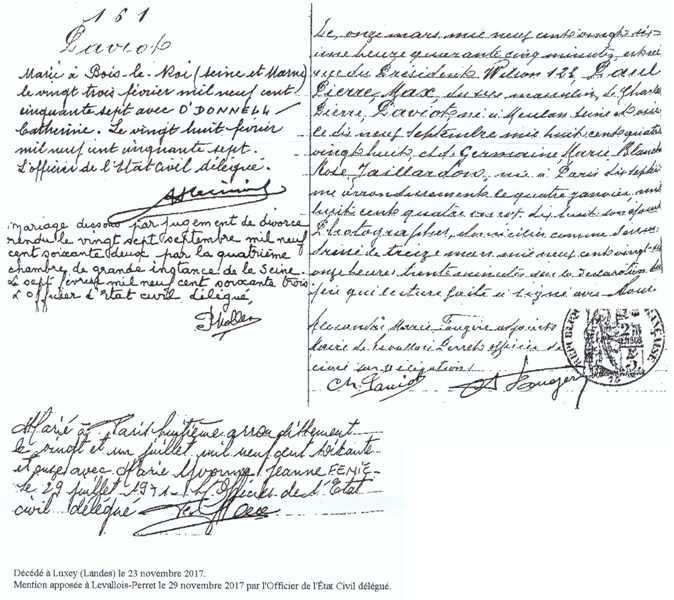 161
Laviot
Marié à Bois-le-Roi (Seine et Marne)
le vingt trois février mil neuf cent
cinquante sept avec O'DONNELL
Catherine. Le vingt huit février
mil neuf cent cinquante sept.
L'officier de l'Etat Civil délégué.
Mariage dissous par jugement de divorce
rendu le vingt sept septembre mil neuf
cent soixante deux par la quatrième
chambre de grande instance de la Seine.
Le sept mil neuf cent soixante trois
L'Officier d'Etat civil délégué,
Le onze mars mil neuf cent vingt six
une heure quarante cinq minutes, est né
rue du Président Wilson 155, Paul
Pierre, Max, du sexe masculin, de Charles
Pierre, Laviot né à Meulan Seine et Oise
le dix neuf septembre mil huit cent quatre
vingt huit, et de Germaine Marie Blanche
Rose, Taillardon, née à Paris dix septième
arrondissement le quatre janvier, mil
huit cent quatre
Photographes, domiciliés comme
treize mars, mil neuf cent vingt six
onze heures trente minutes sur la déclaration du
père qui lecture faite a signé avec Nous
Alexandre Marie adjoint
Maire de Levallois Perret officier de
civil sur délégation
Ch Laviot
Marié à Paris huitième arrondissement
le vingt et un juillet mil neuf cent soixante
et onze avec Marie Yvonne Jeanne
le 29 juillet 1971. L'Officier de l'Etat
civil délégué
Décédé à Luxey (Landes) le 23 novembre 2017.
Mention apposée à Levallois-Perret le 29 novembre 2017 par l'Officier de l'État Civil délégué.